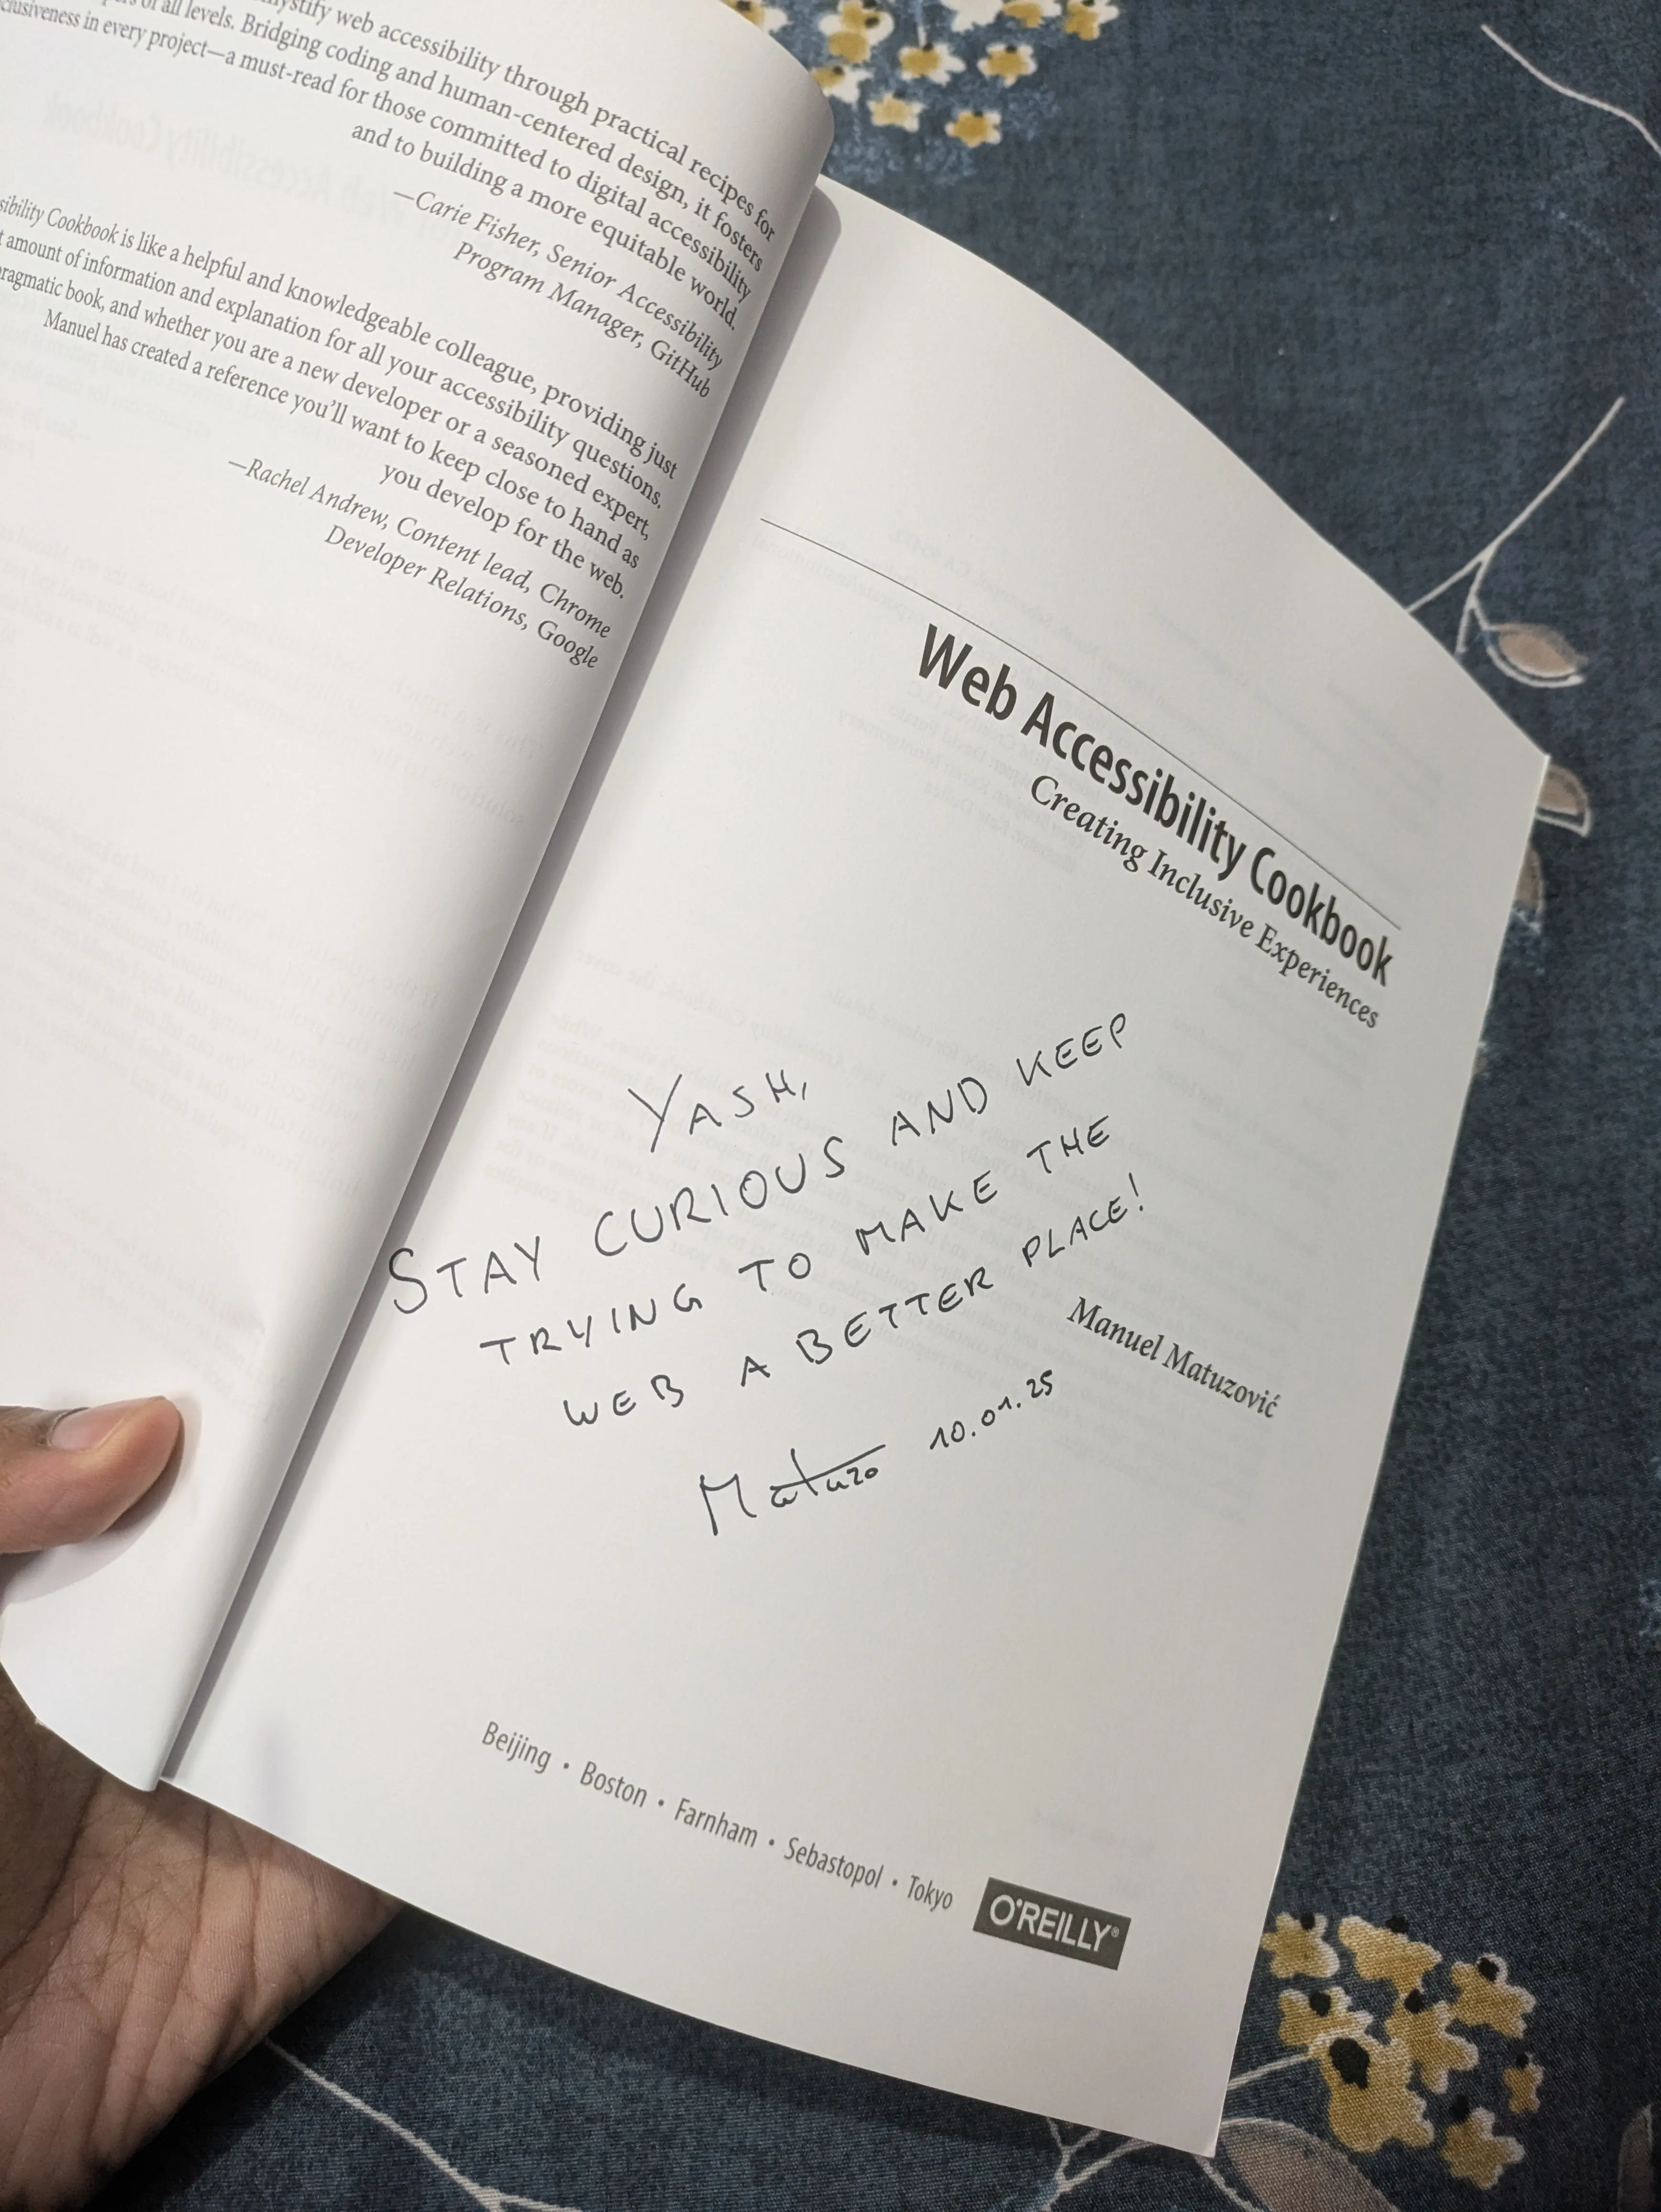 stify web accessibility through practical recipes for
of all levels. Bridging coding and human-centered design, it fosters
clusiveness in every project—a must-read for those committed to digital accessibility
and to building a more equitable world.
—Carie Fisher, Senior Accessibility
Program Manager, GitHub
sibility Cookbook is like a helpful and knowledgeable colleague, providing just
t amount of information and explanation for all your accessibility questions.
ragmatic book, and whether you are a new developer or a seasoned expert,
Manuel has created a reference you'll want to keep close to hand as
you develop for the web.
—Rachel Andrew, Content lead, Chrome
Developer Relations, Google
Web Accessibility Cookbook
Creating Inclusive Experiences
YASH,
STAY CURIOUS AND KEEP
TRYING TO MAKE THE
WEB A BETTER PLACE!
Manuel Matuzović
Matuzo 10.01.25
Beijing • Boston • Farnham • Sebastopol • Tokyo
O'REILLY®